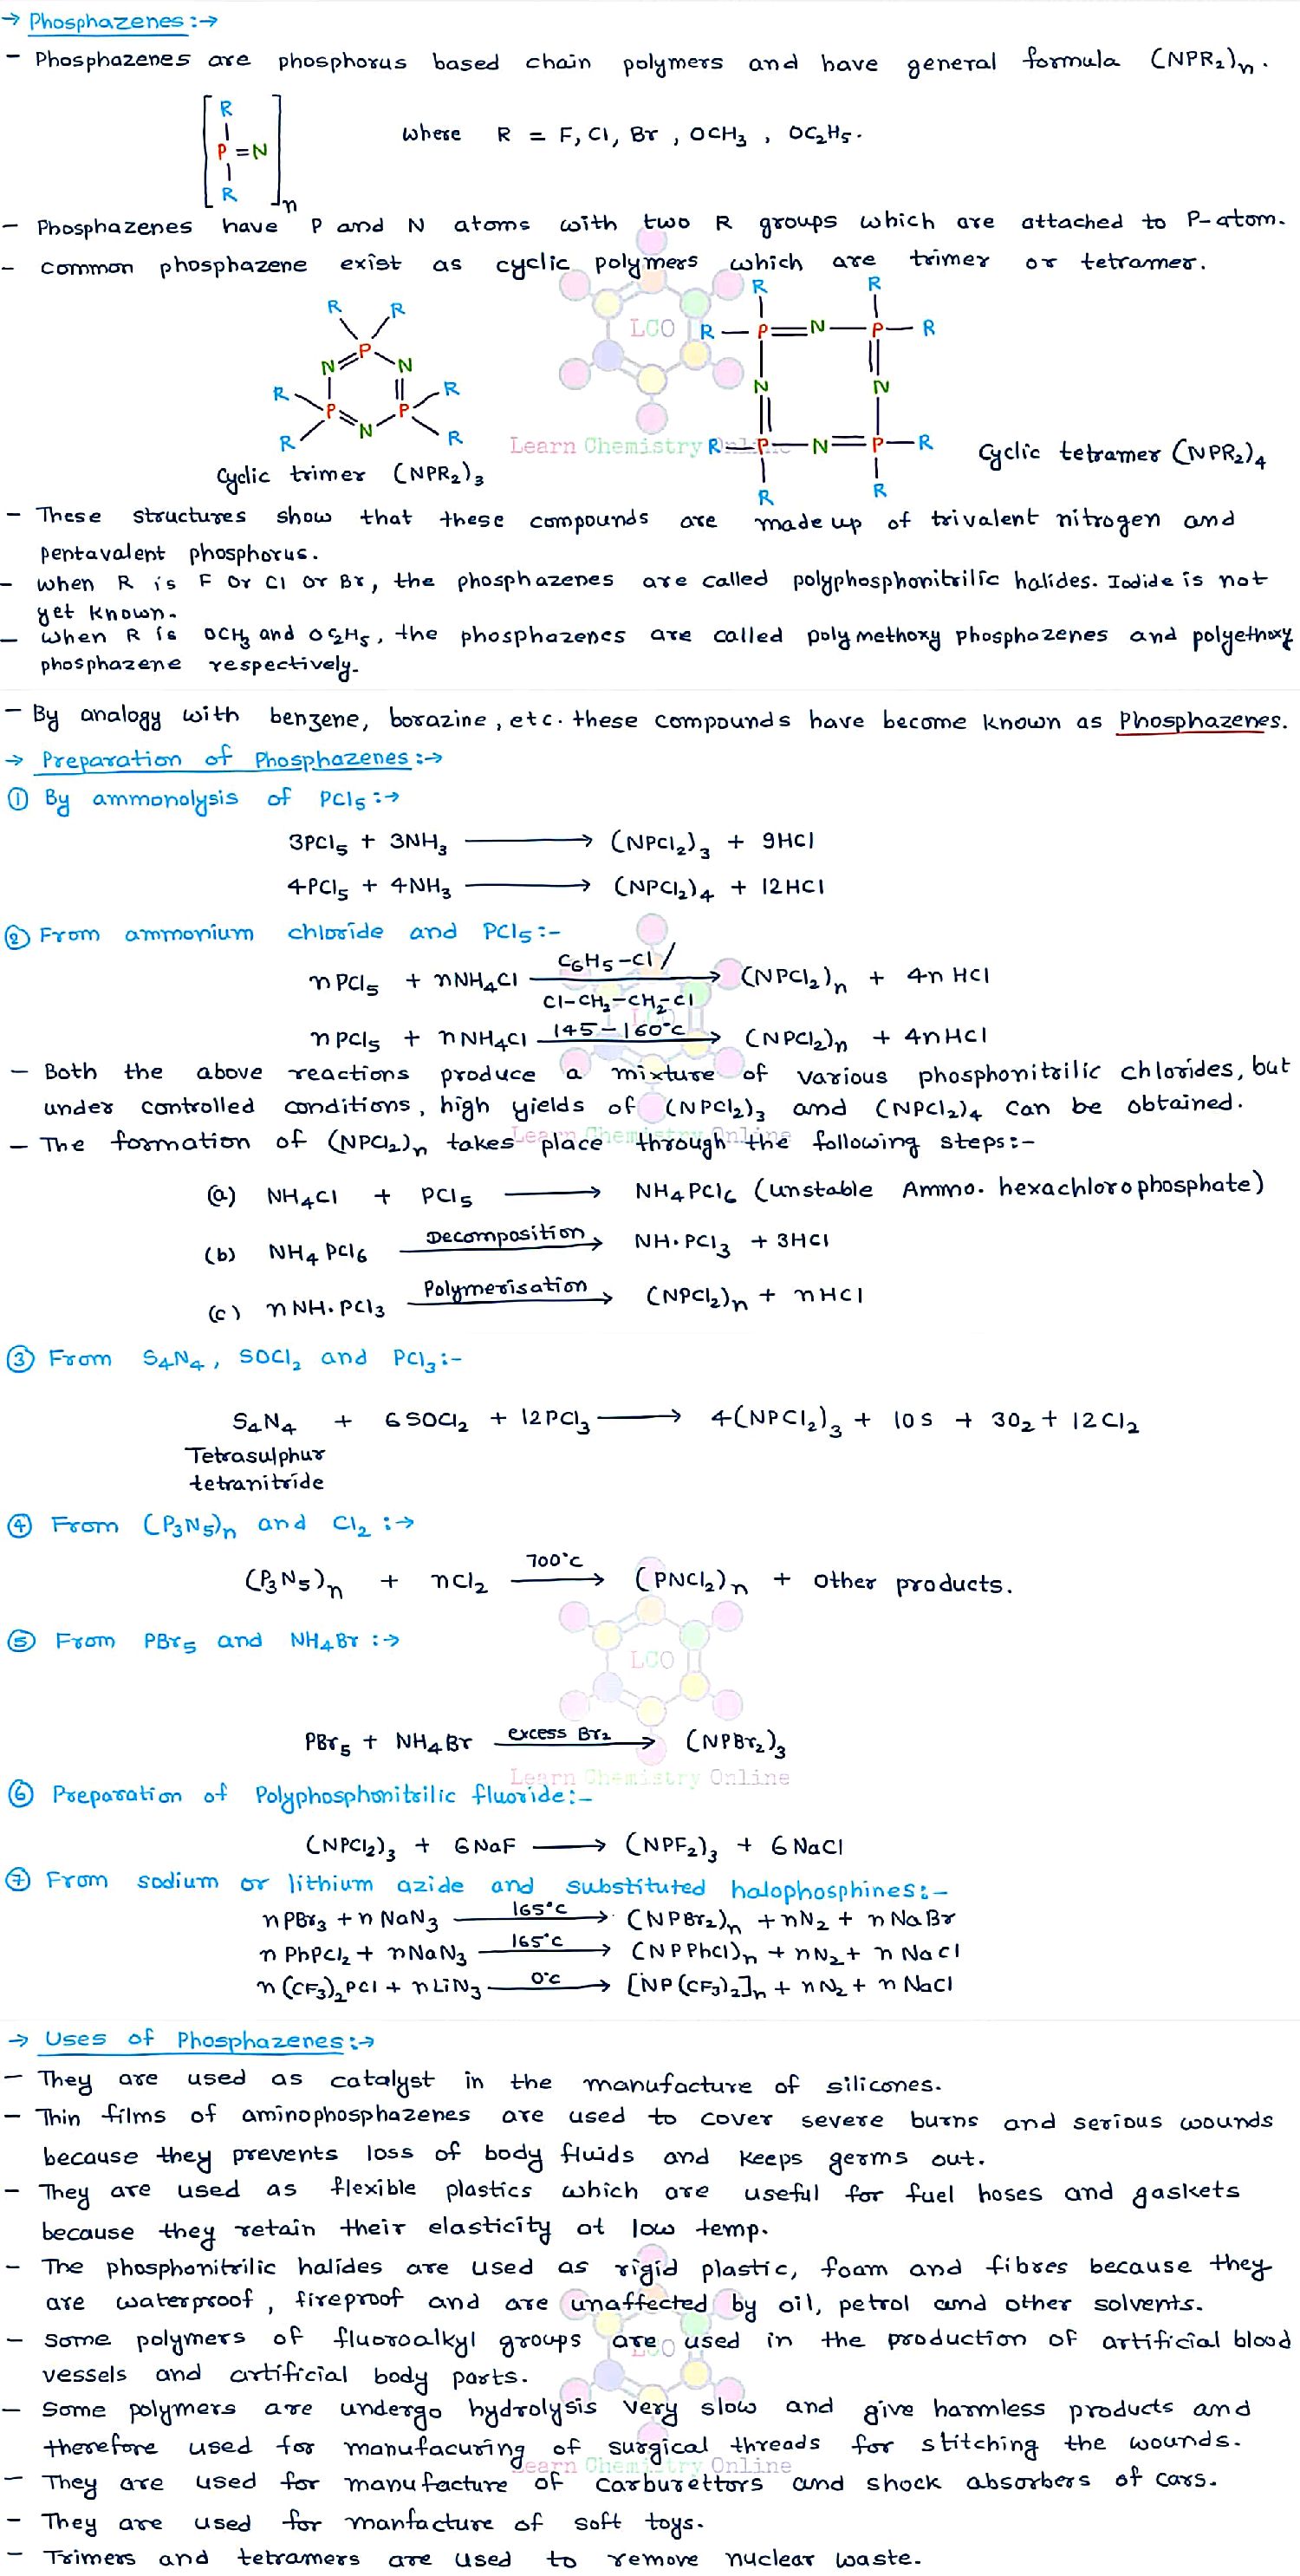 → Phosphazenes :→
- Phosphazenes are phosphorus based chain polymers and have general formula (NPR₂)ₙ.
R
P = N
R
n
where R = F, Cl, Br, OCH₃, OC₂H₅.
- Phosphazenes have P and N atoms with two R groups which are attached to P-atom.
- Common phosphazene exist as cyclic polymers which are trimer or tetramer.
R R
P
N N
R P P R
R N R
Cyclic trimer (NPR₂)₃
R R
R P N P R
N N
R P N P R
R R
Cyclic tetramer (NPR₂)₄
LCO
Learn Chemistry Online
- These structures show that these compounds are made up of trivalent nitrogen and
pentavalent phosphorus.
- When R is F Or Cl Or Br, the phosphazenes are called polyphosphonitrilic halides. Iodide is not
yet known.
- When R is OCH₃ and OC₂H₅, the phosphazenes are called polymethoxy phosphazenes and polyethoxy
phosphazene respectively.
- By analogy with benzene, borazine, etc. these compounds have become known as Phosphazenes.
→ Preparation of Phosphazenes :→
① By ammonolysis of PCl₅ :→
3PCl₅ + 3NH₃ ⟶ (NPCl₂)₃ + 9HCl
4PCl₅ + 4NH₃ ⟶ (NPCl₂)₄ + 12HCl
② From ammonium chloride and PCl₅ :-
C₆H₅-Cl /
nPCl₅ + nNH₄Cl ⟶ (NPCl₂)ₙ + 4n HCl
Cl-CH₂-CH₂-Cl
145-160°c
nPCl₅ + nNH₄Cl ⟶ (NPCl₂)ₙ + 4nHCl
LCO
- Both the above reactions produce a mixture of various phosphonitrilic chlorides, but
under controlled conditions, high yields of (NPCl₂)₃ and (NPCl₂)₄ can be obtained.
Learn Chemistry Online
- The formation of (NPCl₂)ₙ takes place through the following steps :-
(a) NH₄Cl + PCl₅ ⟶ NH₄PCl₆ (Unstable Ammo. hexachlorophosphate)
(b) NH₄PCl₆ Decomposition ⟶ NH·PCl₃ + 3HCl
(c) nNH·PCl₃ Polymerisation ⟶ (NPCl₂)ₙ + nHCl
③ From S₄N₄, SOCl₂ and PCl₃ :-
S₄N₄ + 6SOCl₂ + 12PCl₃ ⟶ 4(NPCl₂)₃ + 10S + 3O₂ + 12Cl₂
Tetrasulphur
tetranitride
④ From (P₃N₅)ₙ and Cl₂ :→
700°c
(P₃N₅)ₙ + nCl₂ ⟶ (PNCl₂)ₙ + Other products.
⑤ From PBr₅ and NH₄Br :→
LCO
PBr₅ + NH₄Br excess Br₂ ⟶ (NPBr₂)₃
Learn Chemistry Online
⑥ Preparation of Polyphosphonitrilic fluoride :-
(NPCl₂)₃ + 6NaF ⟶ (NPF₂)₃ + 6NaCl
⑦ From sodium or lithium azide and substituted halophosphines :-
nPBr₃ + nNaN₃ 165°c ⟶ (NPBr₂)ₙ + nN₂ + nNaBr
nPhPCl₂ + nNaN₃ 165°c ⟶ (NPPhCl)ₙ + nN₂ + nNaCl
n(CF₃)₂PCl + nLiN₃ 0°c ⟶ [NP(CF₃)₂]ₙ + nN₂ + nNaCl
→ Uses of Phosphazenes :→
- They are used as catalyst in the manufacture of silicones.
- Thin films of aminophosphazenes are used to cover severe burns and serious wounds
because they prevents loss of body fluids and keeps germs out.
- They are used as flexible plastics which are useful for fuel hoses and gaskets
because they retain their elasticity at low temp.
- The phosphonitrilic halides are used as rigid plastic, foam and fibres because they
are waterproof, fireproof and are unaffected by oil, petrol and other solvents.
- Some polymers of fluoroalkyl groups are used in the production of artificial blood
LCO
vessels and artificial body parts.
- Some polymers are undergo hydrolysis very slow and give harmless products and
therefore used for manufacuring of surgical threads for stitching the wounds.
Learn Chemistry Online
- They are used for manufacture of carburettors and shock absorbers of cars.
- They are used for manfacture of soft toys.
- Trimers and tetramers are used to remove nuclear waste.